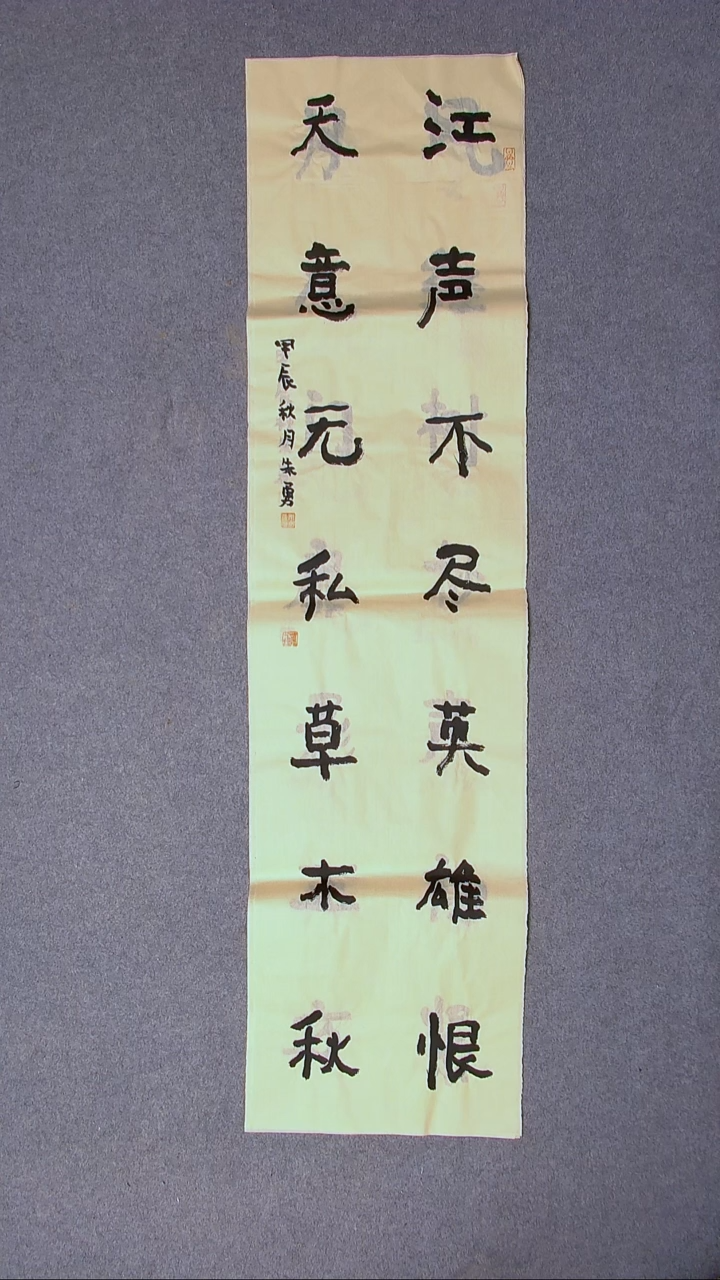 江声不尽英雄恨
天意无私草木秋
甲辰秋月朱勇